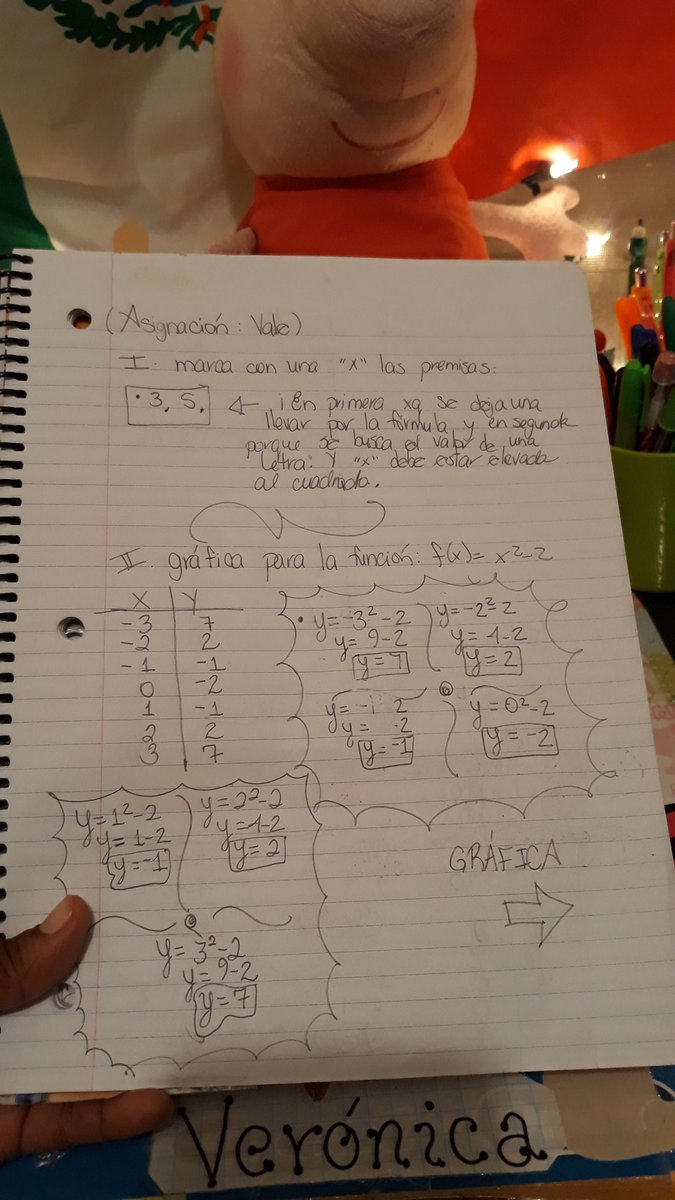 (Asignación: Vale)
I. marca con una "x" las premisas:
• 3, 5. ← ¡En primera xq se deja una
llevar por la fórmula y en segunda
porque se busca el valor de una
letra: Y "x" debe estar elevada
al cuadrado.
II. gráfica para la función: f(x)= x²-2
X | Y
-3 | 7
-2 | 2
-1 | -1
0 | -2
1 | -1
2 | 2
3 | 7
• y=-3²-2
y= 9-2
y=7
y=-2²-2
y= 4-2
y=2
y=-1 2
y= -2
y=-1
y=0²-2
y=-2
y=1²-2
y= 1-2
y=-1
y=2²-2
y=4-2
y=2
y= 3²-2
y= 9-2
y=7
GRÁFICA
Verónica